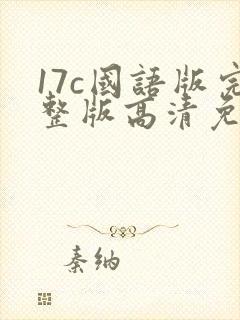 17c國語版完
整版高清免
秦纳